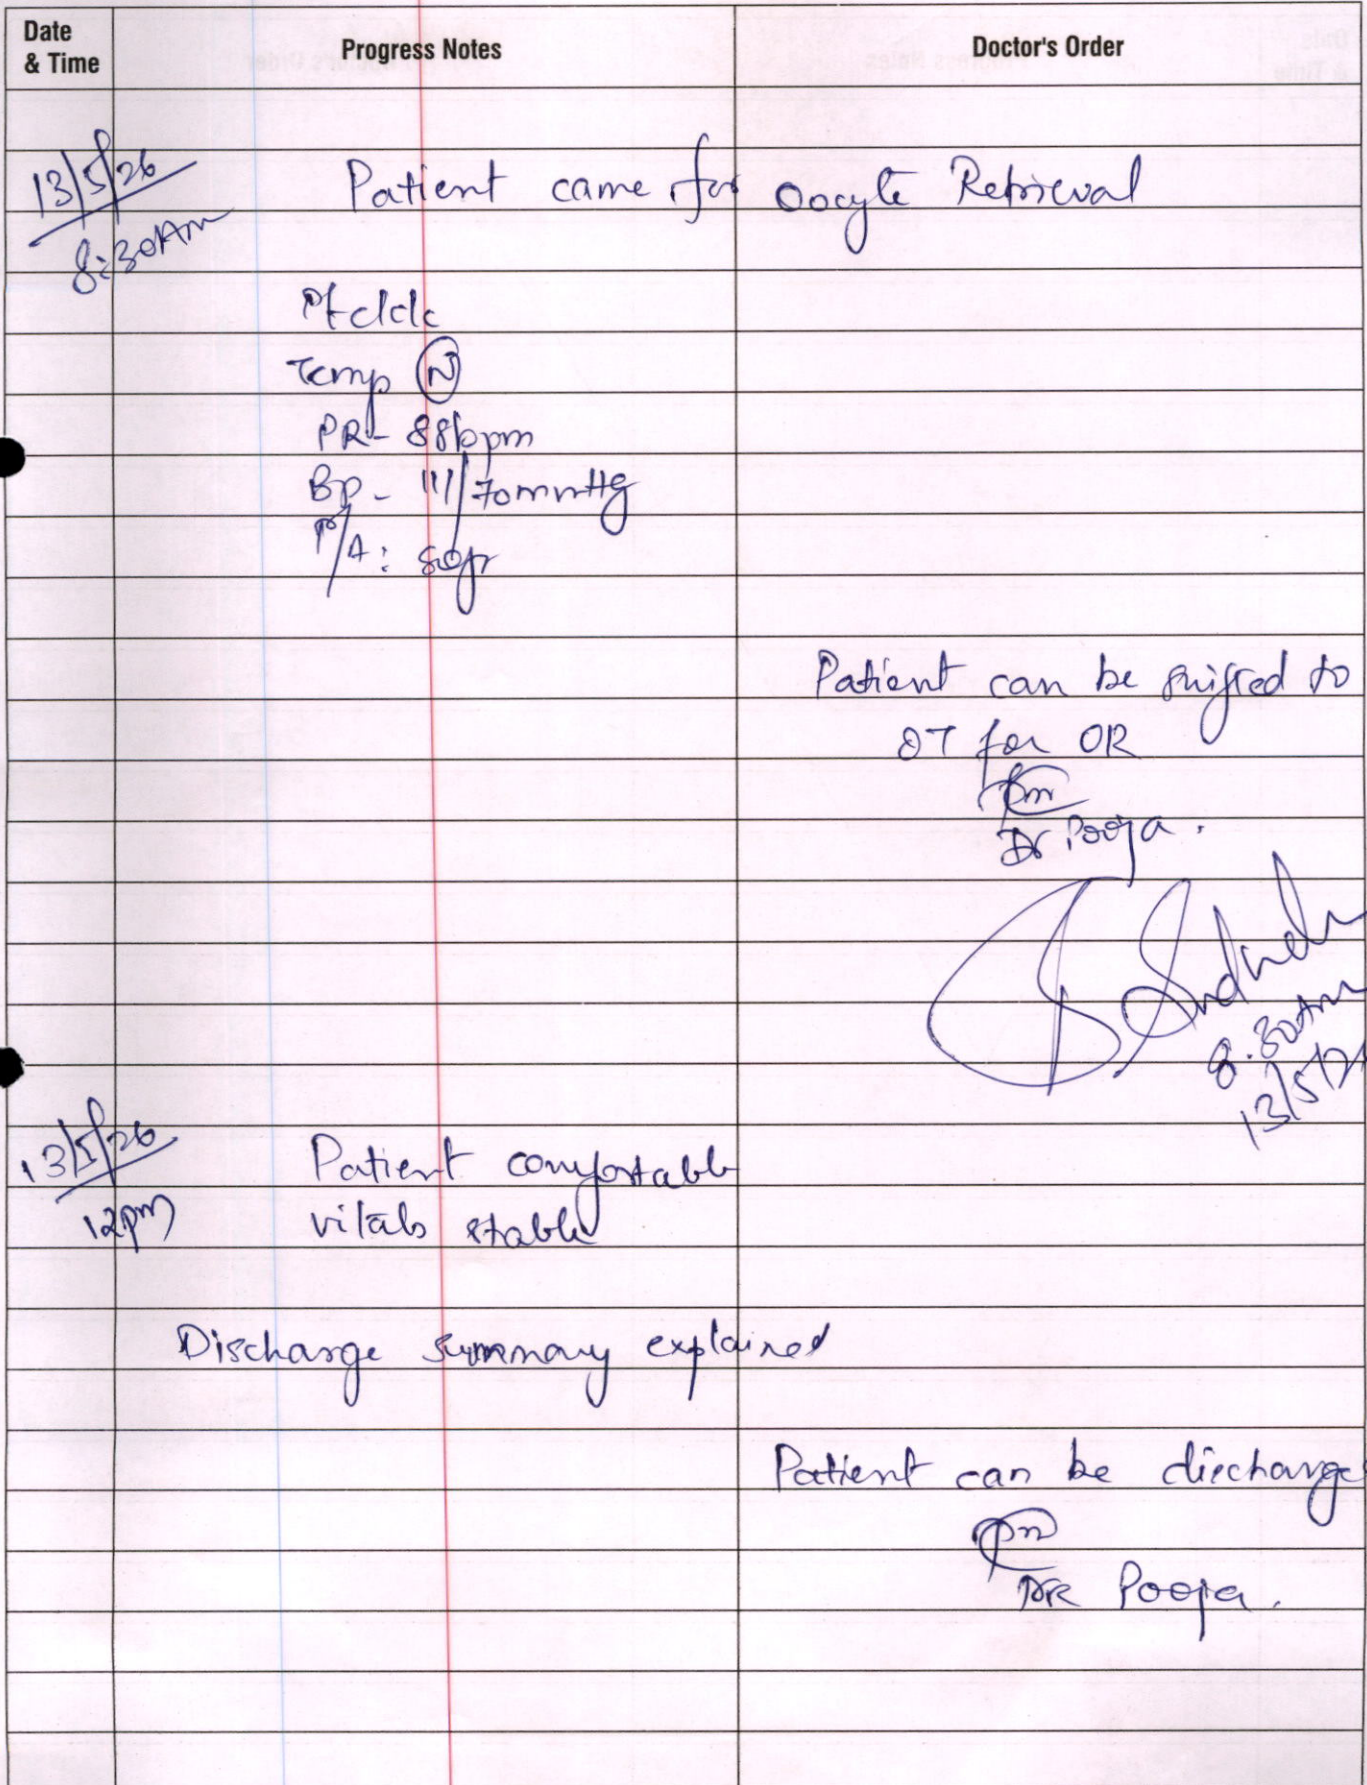 Date
& Time
Progress Notes
Doctor's Order
13/5/26
8:30Am
Patient came for Oocyte Retrieval
Pt c/c/c
Temp (N)
PR- 88bpm
BP- 111/70mmHg
P/A: soft
Patient can be shifted to
OT for OR
Dr Pooja.
8.30Am
13/5/2
13/5/26
12pm
Patient comfortable
vitals stable
Discharge summary explained
Patient can be discharge
DR Pooja.